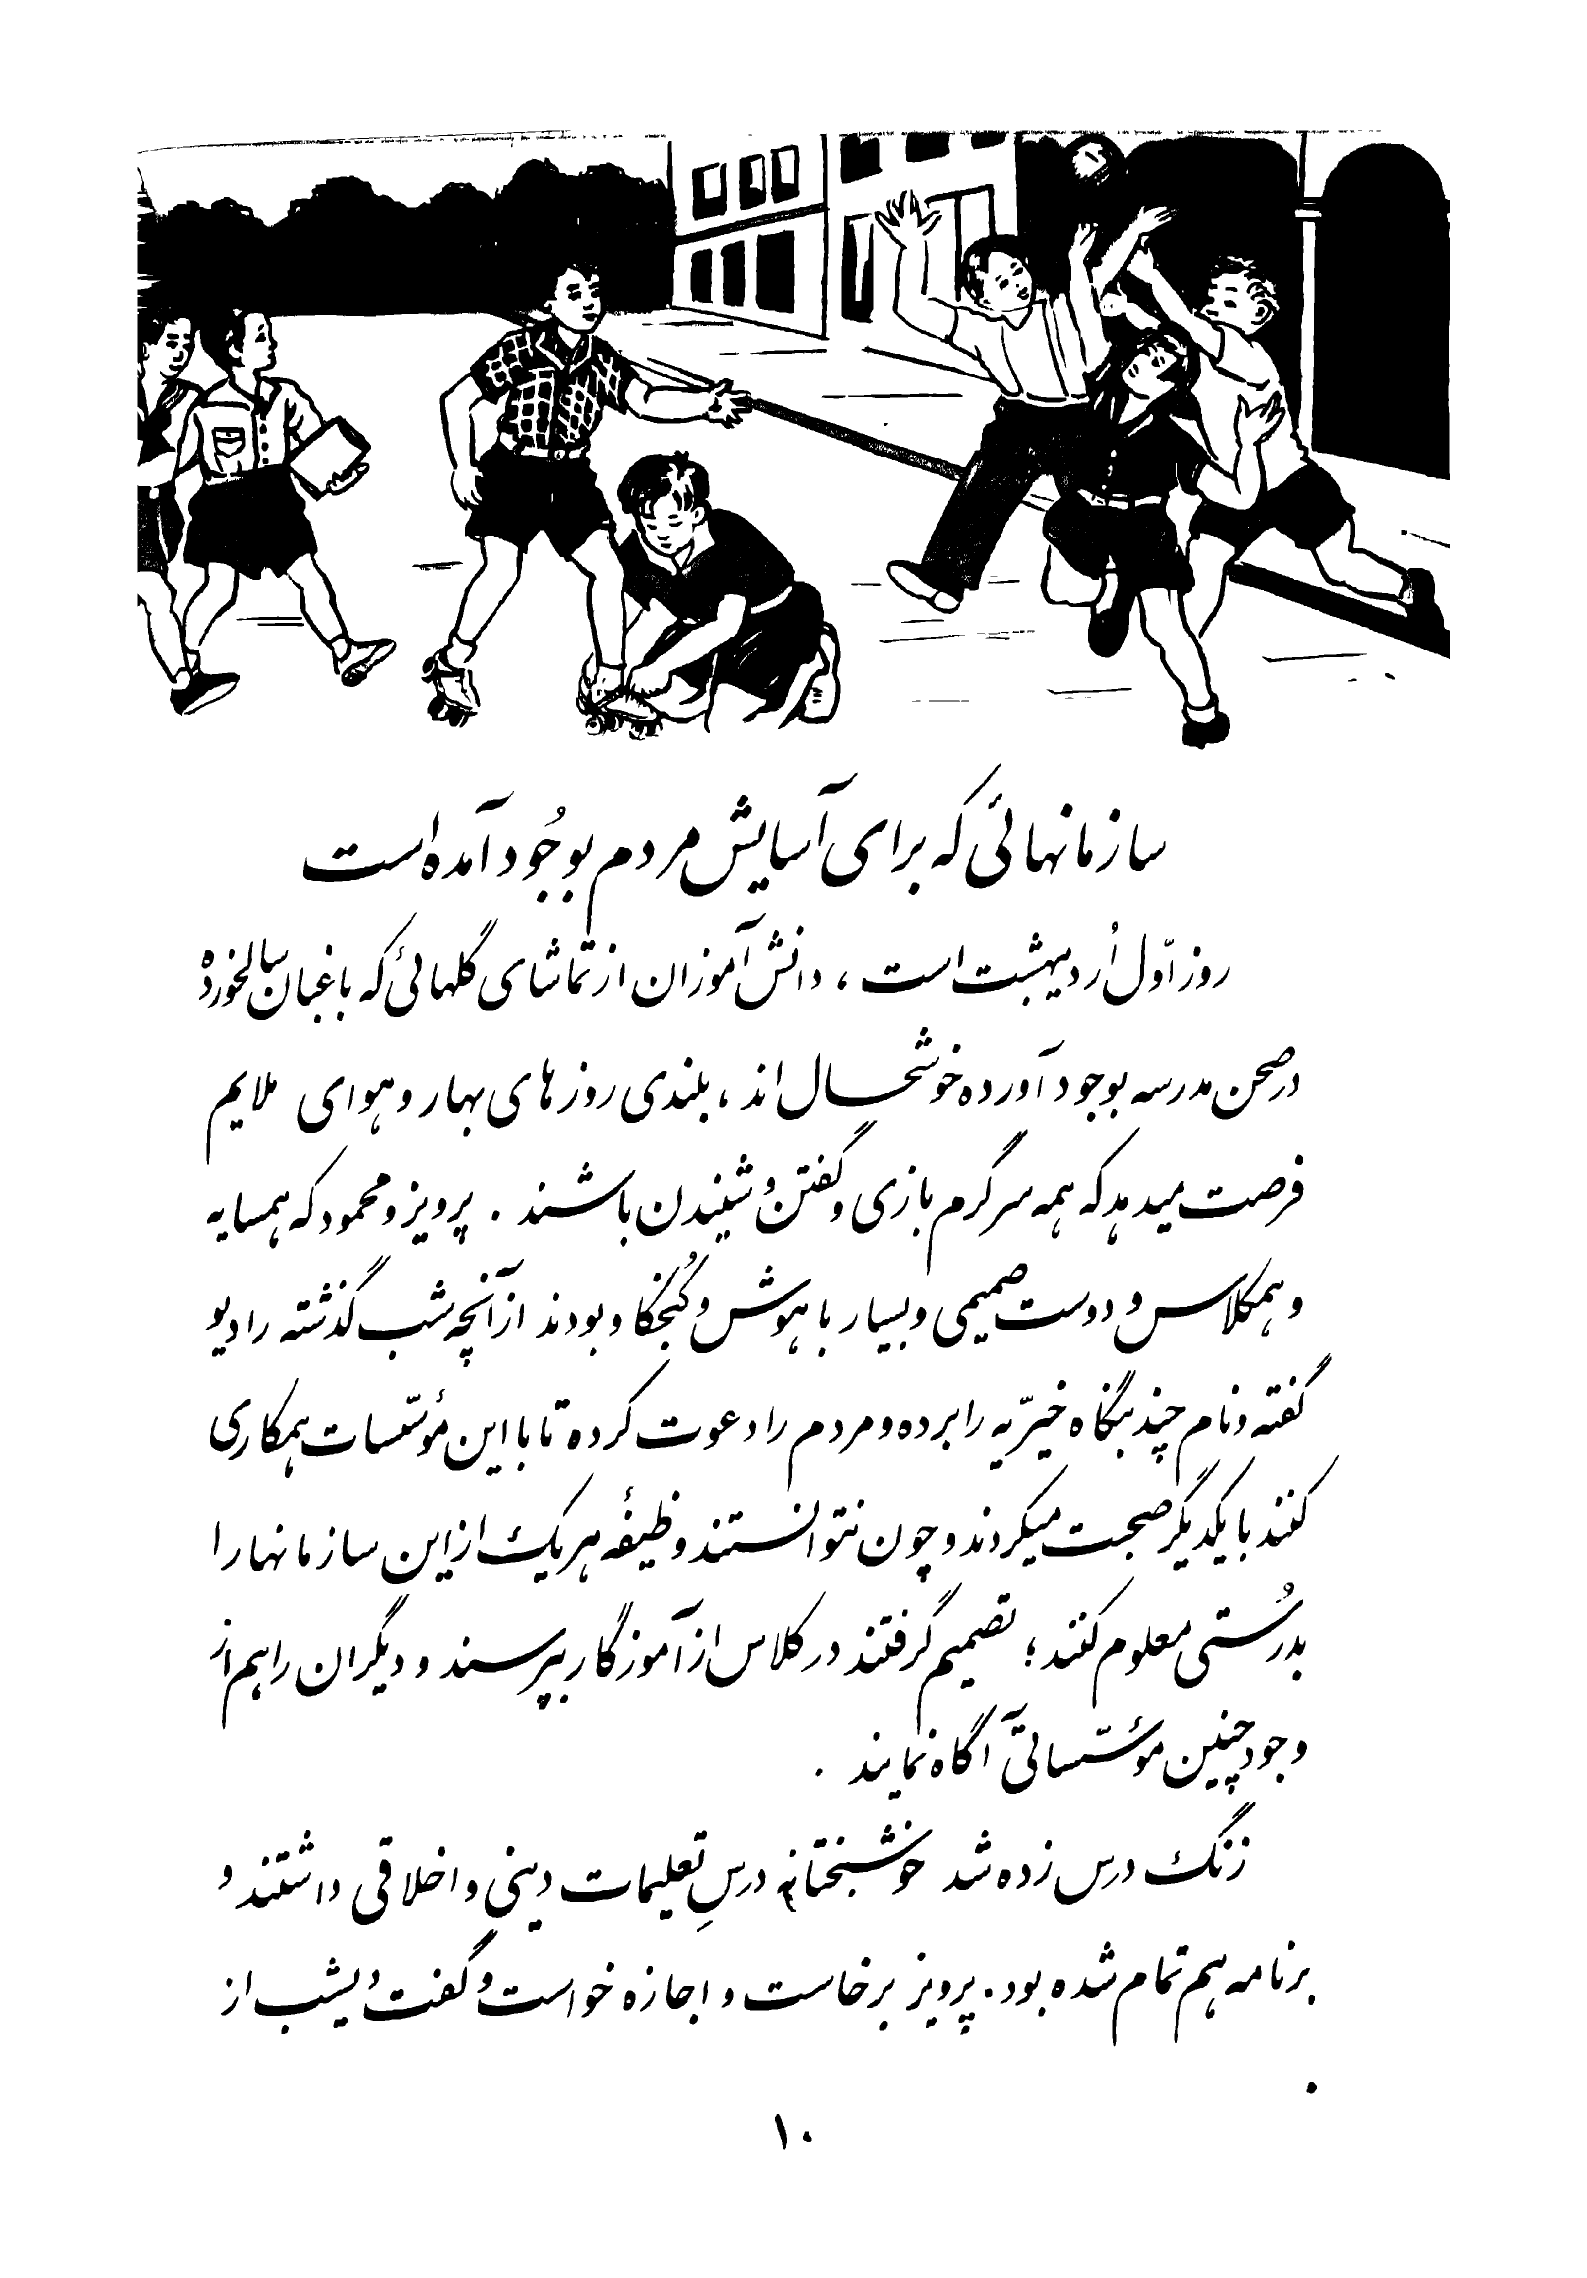 سازمانهائی که برای آسایش مردم بوجُود آمده است
روز اوّل اُردیبهشت است ، دانش‌آموزان از تماشای گلهائی که باغبان سالخورده
در صحن مدرسه بوجود آورده خوشحال‌اند ، بلندی روزهای بهار و هوای ملایم
فرصت میدهد که همه سرگرم بازی و گفتن و شنیدن باشند . پرویز و محمود که همسایه
و همکلاس و دوست صمیمی و بسیار باهوش و کُنجکاو بودند از آنچه شب گذشته رادیو
گفته و نام چند بنگاه خیریّه را برده و مردم را دعوت کرده تا با این مؤسّسات همکاری
کنند با یکدیگر صحبت میکردند و چون نتوانستند وظیفهٔ هر یک از این سازمانها را
بدرُستی معلوم کنند ؛ تصمیم گرفتند در کلاس از آموزگار بپرسند و دیگران را هم از
وجود چنین مؤسّساتی آگاه نمایند .
زنگ درس زده شد خوشبختانه درسِ تعلیمات دینی و اخلاقی داشتند و
برنامه هم تمام شده بود . پرویز برخاست و اجازه خواست و گفت دیشب از
۱۰